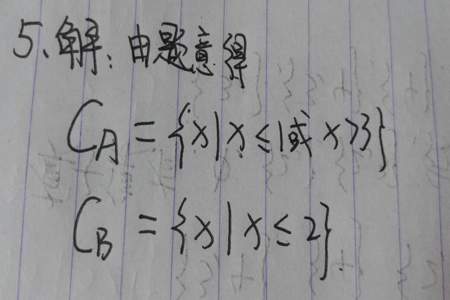 5、解:由题意得
C_A = {x|x≤1或x>3}
C_B = {x|x≤2}